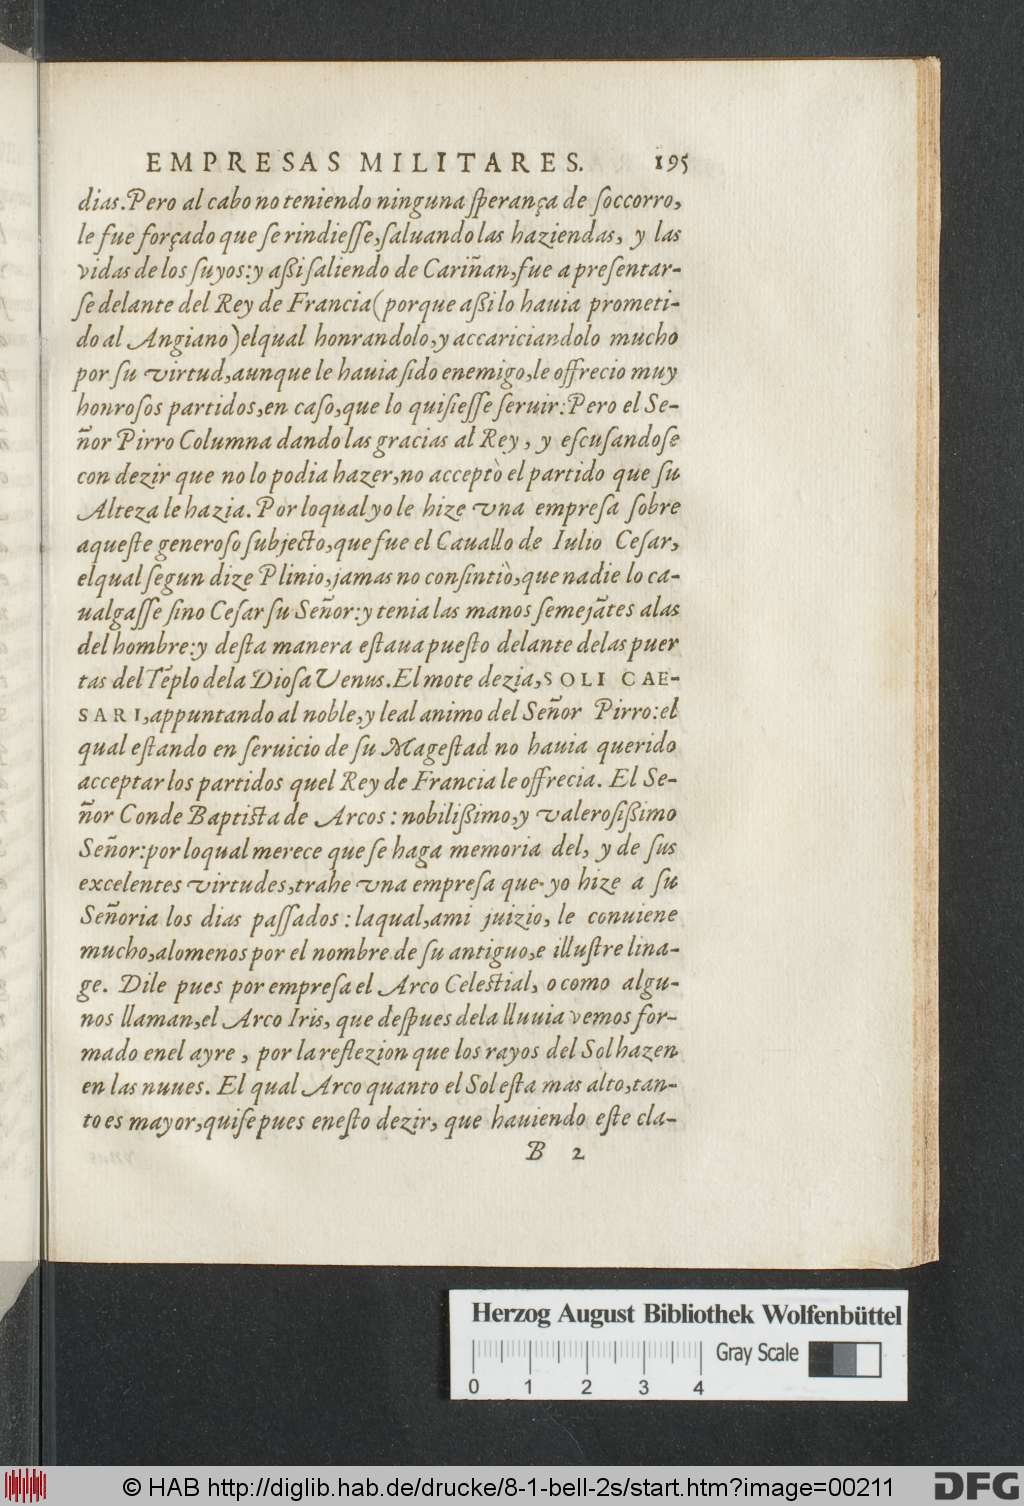 EMPRESAS MILITARES. 195
dias. Pero al cabo no teniendo ninguna ſperança de ſoccorro,
le fue forçado que ſe rindieſſe, ſaluando las haziendas, y las
vidas de los ſuyos: y aßi ſaliendo de Cariñan, fue a preſentar-
ſe delante del Rey de Francia (porque aßi lo hauia prometi-
do al Angiano) elqual honrandolo, y accariciandolo mucho
por ſu virtud, aunque le hauia ſido enemigo, le offrecio muy
honroſos partidos, en caſo, que lo quiſieſſe ſeruir: Pero el Se-
ñor Pirro Columna dando las gracias al Rey, y eſcuſandoſe
con dezir que no lo podia hazer, no acceptò el partido que ſu
Alteza le hazia. Por loqual yo le hize vna empreſa ſobre
aqueſte generoſo ſubjecto, que fue el Cauallo de Iulio Ceſar,
elqual ſegun dize Plinio, jamas no conſintiò, que nadie lo ca-
ualgaſſe ſino Ceſar ſu Señor: y tenia las manos ſemejãtes alas
del hombre: y deſta manera eſtaua pueſto delante delas puer
tas del Tẽplo dela Dioſa Venus. El mote dezia, SOLI CAE-
SARI, appuntando al noble, y leal animo del Señor Pirro: el
qual eſtando en ſeruicio de ſu Mageſtad no hauia querido
acceptar los partidos quel Rey de Francia le offrecia. El Se-
ñor Conde Baptiſta de Arcos: nobilißimo, y valeroſißimo
Señor: por loqual merece que ſe haga memoria del, y de ſus
excelentes virtudes, trahe vna empreſa que yo hize a ſu
Señoria los dias paſſados: laqual, ami juizio, le conuiene
mucho, alomenos por el nombre de ſu antiguo, e illuſtre lina-
ge. Dile pues por empreſa el Arco Celeſtial, o como algu-
nos llaman, el Arco Iris, que deſpues dela lluuia vemos for-
mado enel ayre, por la reflezion que los rayos del Sol hazen
en las nuues. El qual Arco quanto el Sol eſta mas alto, tan-
to es mayor, quiſe pues eneſto dezir, que hauiendo eſte cla-
B 2
Herzog August Bibliothek Wolfenbüttel
Gray Scale
0 1 2 3 4
© HAB http://diglib.hab.de/drucke/8-1-bell-2s/start.htm?image=00211
DFG